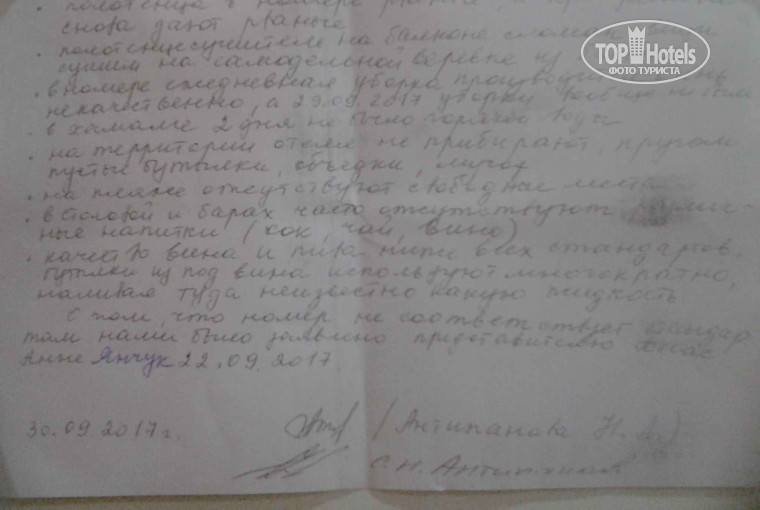 TOP Hotels
ФОТО ТУРИСТА
полотенца в номере рваные, и при
снова дают рваные
· полотенцесушитель на балконе
сушим на самодельной верёвке из
· в номере ежедневная уборка
некачественно, а 29.09.2017 уборки вообще не было
· в хамаме 2 дня не было горячей воды
· на территории отеля не прибирают, кругом
пустые бутылки, объедки, мусор
· на пляже отсутствуют свободные места
· в столовой и барах часто отсутствуют
ные напитки (сок, чай, вино)
· качество вина и пива ниже всех стандартов,
бутылки из под вина используют многократно,
наливая туда неизвестно какую жидкость
О том, что номер не соответствует стандар
там нами было заявлено представителю
Анне Янчук 22.09.2017.
30.09.2017г. (Антипанова Н.
С.Н.